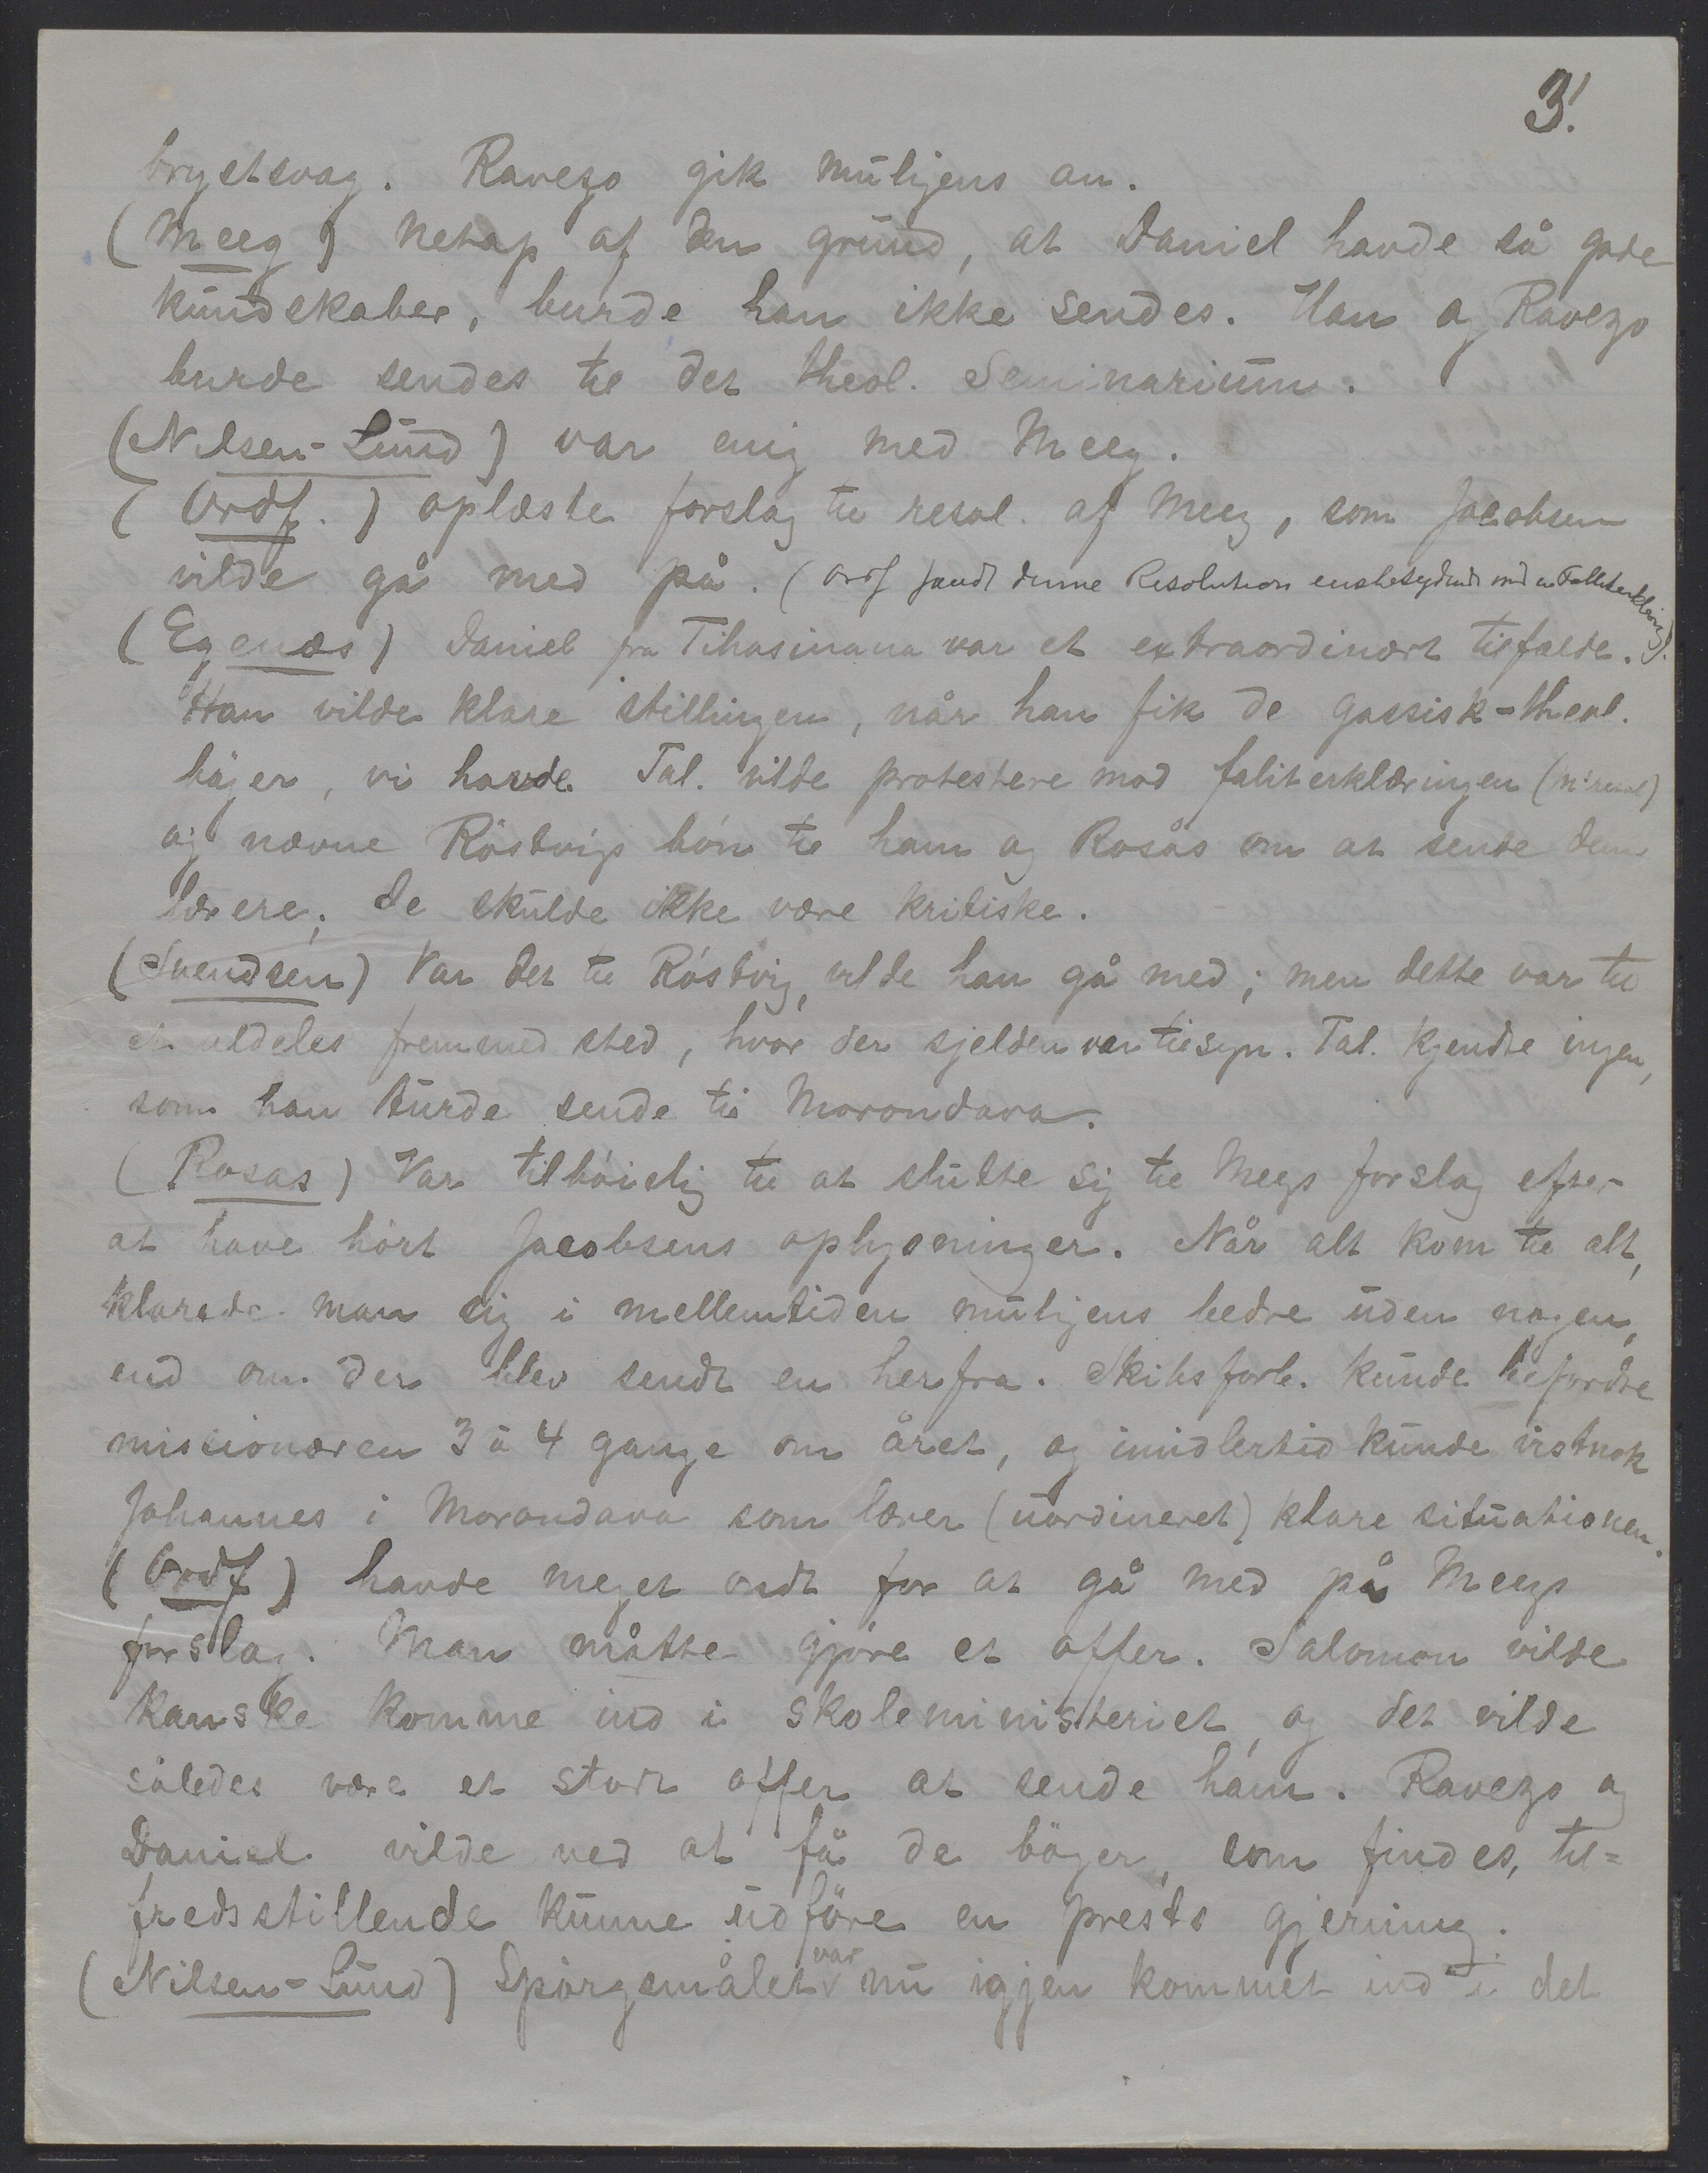 3!
brystsvag. Ravezo gik muligens an.
(Meeg) Netop af den grund, at Daniel havde så gode
kundskaber, burde han ikke sendes. Han og Ravezo
burde sendes til det theol. Seminarium.
(Nilsen-Lund) var enig med Meeg.
(Ordf.) oplæste forslag til resol. af Meeg, som Jacobsen
vilde gå med på. (Ordf fandt denne Resolution ensbetydende med en Falliterklæring).
(Egenæs) Daniel fra Tihasinana var et extraordinært tilfælde.
Han vilde klare stillingen, når han fik de gassisk-theol.
bøger, vi havde. Tal. vilde protestere mod faliterklæringen
og nævne Röstvigs bön til ham og Rosås om at sende dem
lærere; de skulde ikke være kritiske.
(Svendsen) Var det til Röstvig, vilde han gå med; men dette var til
et aldeles fremmed sted, hvor der sjelden var tilsyn. Tal. kjendte ingen,
som han turde sende til Morondava.
(Rosas) Var tilböielig til at slutte sig til Meegs forslag efter
at have hört Jacobsens oplysninger. Når alt kom til alt,
klarede man sig i mellemtiden muligens bedre uden nogen,
end om der blev sendt en herfra. Skibsforb. kunde befordre
missionæren 3 à 4 gange om året, og imidlertid kunde vistnok
Johannes i Morondava som lærer (uordineret) klare situationen.
(Ordf) havde meget ondt for at gå med på Meegs
forslag. Man måtte gjöre et offer. Salomon vilde
kanske komme ind i skoleministeriet, og det vilde
således være et stort offer at sende ham. Ravezo og
Daniel vilde ved at få de böger, som findes, til=
fredsstillende kunne udföre en prests gjerning.
(Nilsen-Lund) Spörgsmålet var nu igjen kommet ind i det